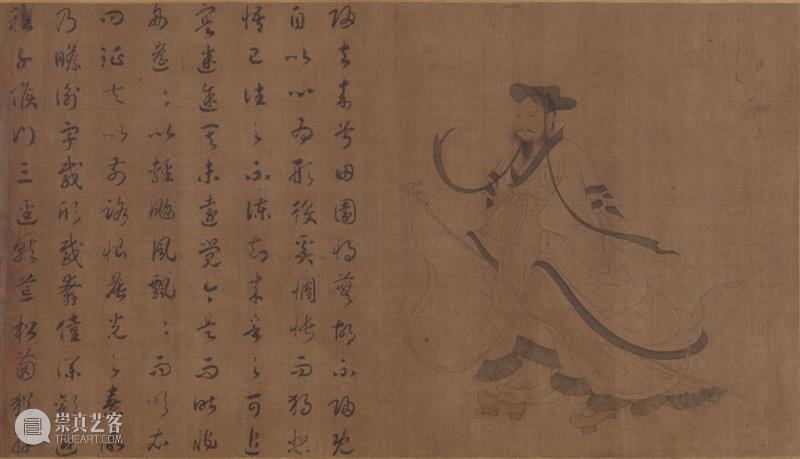 歸去來兮田園將蕪胡不歸既
自以心為形役奚惆悵而獨悲
悟已往之不諫知來者之可追
寔迷途其未遠覺今是而昨非
舟遙〻以輕颺風飄〻而吹衣
問征夫以前路恨晨光之熹微
乃瞻衡宇載欣載奔僮僕歡迎
稚子候門三逕就荒松菊猶存
崇真艺客
WWW.TRUEART.COM